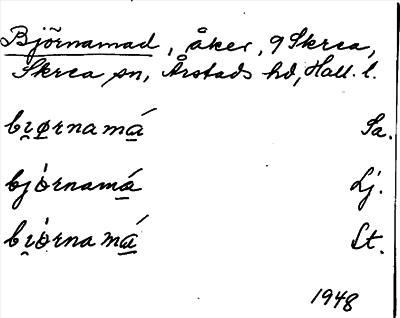 Björnamad, åker, 9 Skrea,
Skrea sn, Årstads hd, Hall. l.
bi̯ø̱rnamá̱ Sa.
bjòrnamá̱ Lj.
bi̯òrnamá̱ St.
1948